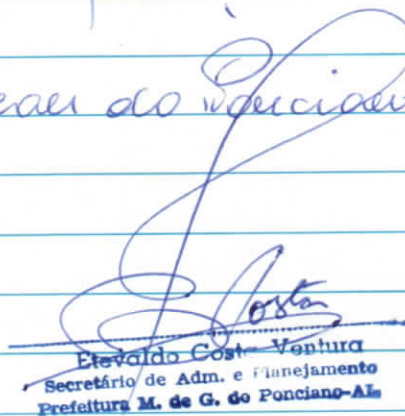 do Ponciano
Costa
Etevaldo Costa Ventura
Secretário de Adm. e Planejamento
Prefeitura M. de G. do Ponciano-AL